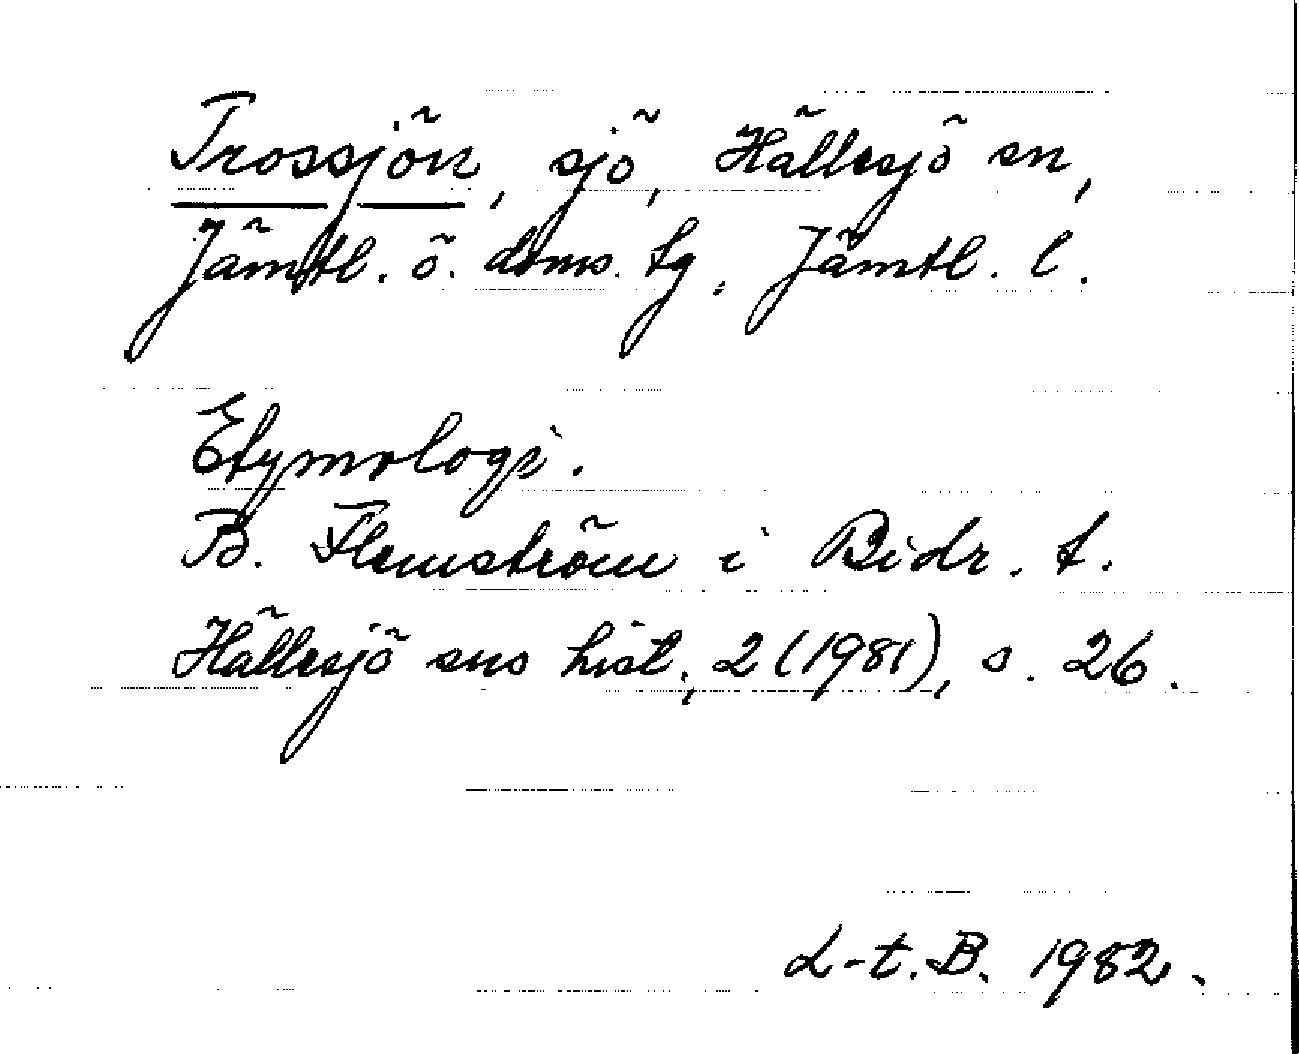 Trossjön, sjö, Hällesjö sn,
Jämtl. ö. doms. tg, Jämtl. l.
Etymologi.
B. Flemström i Bidr. t.
Hällesjö sns hist., 2 (1981), s. 26.
L-t. B. 1982.